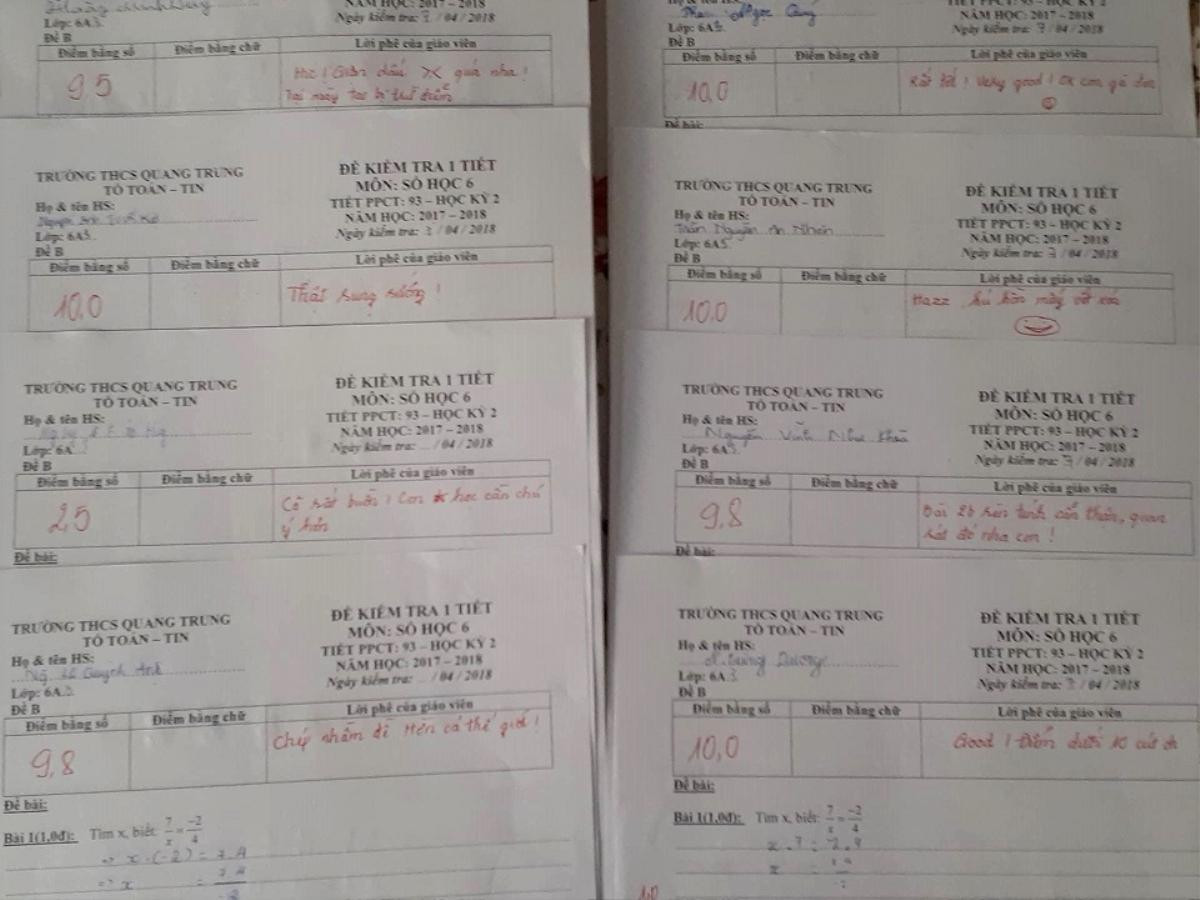 Lớp: 6A3
Đề B
Ngày kiểm tra: 7 / 04 / 2018
Điểm bằng số Điểm bằng chữ Lời phê của giáo viên
9,5
quá nha!
TRƯỜNG THCS QUANG TRUNG
TỔ TOÁN – TIN
Họ & tên HS:
Lớp: 6A3
Đề B
ĐỀ KIỂM TRA 1 TIẾT
MÔN: SỐ HỌC 6
TIẾT PPCT: 93 – HỌC KỲ 2
NĂM HỌC: 2017 – 2018
Ngày kiểm tra: 7 / 04 / 2018
Điểm bằng số Điểm bằng chữ Lời phê của giáo viên
10,0
Thật sung sướng!
TRƯỜNG THCS QUANG TRUNG
TỔ TOÁN – TIN
Họ & tên HS:
Lớp: 6A
Đề B
ĐỀ KIỂM TRA 1 TIẾT
MÔN: SỐ HỌC 6
TIẾT PPCT: 93 – HỌC KỲ 2
NĂM HỌC: 2017 – 2018
Ngày kiểm tra: ... / 04 / 2018
Điểm bằng số Điểm bằng chữ Lời phê của giáo viên
2,5
Cô rất buồn! Con học cần chú
ý hơn
Đề bài:
TRƯỜNG THCS QUANG TRUNG
TỔ TOÁN – TIN
Họ & tên HS:
Quỳnh Anh
Lớp: 6A3
Đề B
ĐỀ KIỂM TRA 1 TIẾT
MÔN: SỐ HỌC 6
TIẾT PPCT: 93 – HỌC KỲ 2
NĂM HỌC: 2017 – 2018
Ngày kiểm tra: ... / 04 / 2018
Điểm bằng số Điểm bằng chữ Lời phê của giáo viên
9,8
Chép nhầm đề hên cả thế giới!
Đề bài:
Bài 1(1,0đ): Tìm x, biết: 7/x = -2/4
=> x.(-2) = 7.4
=> x = 7.4/-2
Ngọc
Lớp: 6A3
Đề B
NĂM HỌC: 2017 – 2018
Ngày kiểm tra: 7 / 04 / 2018
Điểm bằng số Điểm bằng chữ Lời phê của giáo viên
10,0
Rất tốt! Very good! OK con gà
Đề bài:
TRƯỜNG THCS QUANG TRUNG
TỔ TOÁN – TIN
Họ & tên HS:
Trần Nguyễn An Nhiên
Lớp: 6A3
Đề B
ĐỀ KIỂM TRA 1 TIẾT
MÔN: SỐ HỌC 6
TIẾT PPCT: 93 – HỌC KỲ 2
NĂM HỌC: 2017 – 2018
Ngày kiểm tra: 7 / 04 / 2018
Điểm bằng số Điểm bằng chữ Lời phê của giáo viên
10,0
Hazz hú hồn mày
TRƯỜNG THCS QUANG TRUNG
TỔ TOÁN – TIN
Họ & tên HS:
Nguyễn Vĩnh Như
Lớp: 6A3
Đề B
ĐỀ KIỂM TRA 1 TIẾT
MÔN: SỐ HỌC 6
TIẾT PPCT: 93 – HỌC KỲ 2
NĂM HỌC: 2017 – 2018
Ngày kiểm tra: 7 / 04 / 2018
Điểm bằng số Điểm bằng chữ Lời phê của giáo viên
9,8
Bài 2b nên tính cẩn thận, quan
sát đó nha con!
Đề bài:
TRƯỜNG THCS QUANG TRUNG
TỔ TOÁN – TIN
Họ & tên HS:
Dương
Lớp: 6A3
Đề B
ĐỀ KIỂM TRA 1 TIẾT
MÔN: SỐ HỌC 6
TIẾT PPCT: 93 – HỌC KỲ 2
NĂM HỌC: 2017 – 2018
Ngày kiểm tra: 7 / 04 / 2018
Điểm bằng số Điểm bằng chữ Lời phê của giáo viên
10,0
Good! Điểm dưới 10
Đề bài:
Bài 1(1,0đ): Tìm x, biết: 7/x = -2/4
1,0